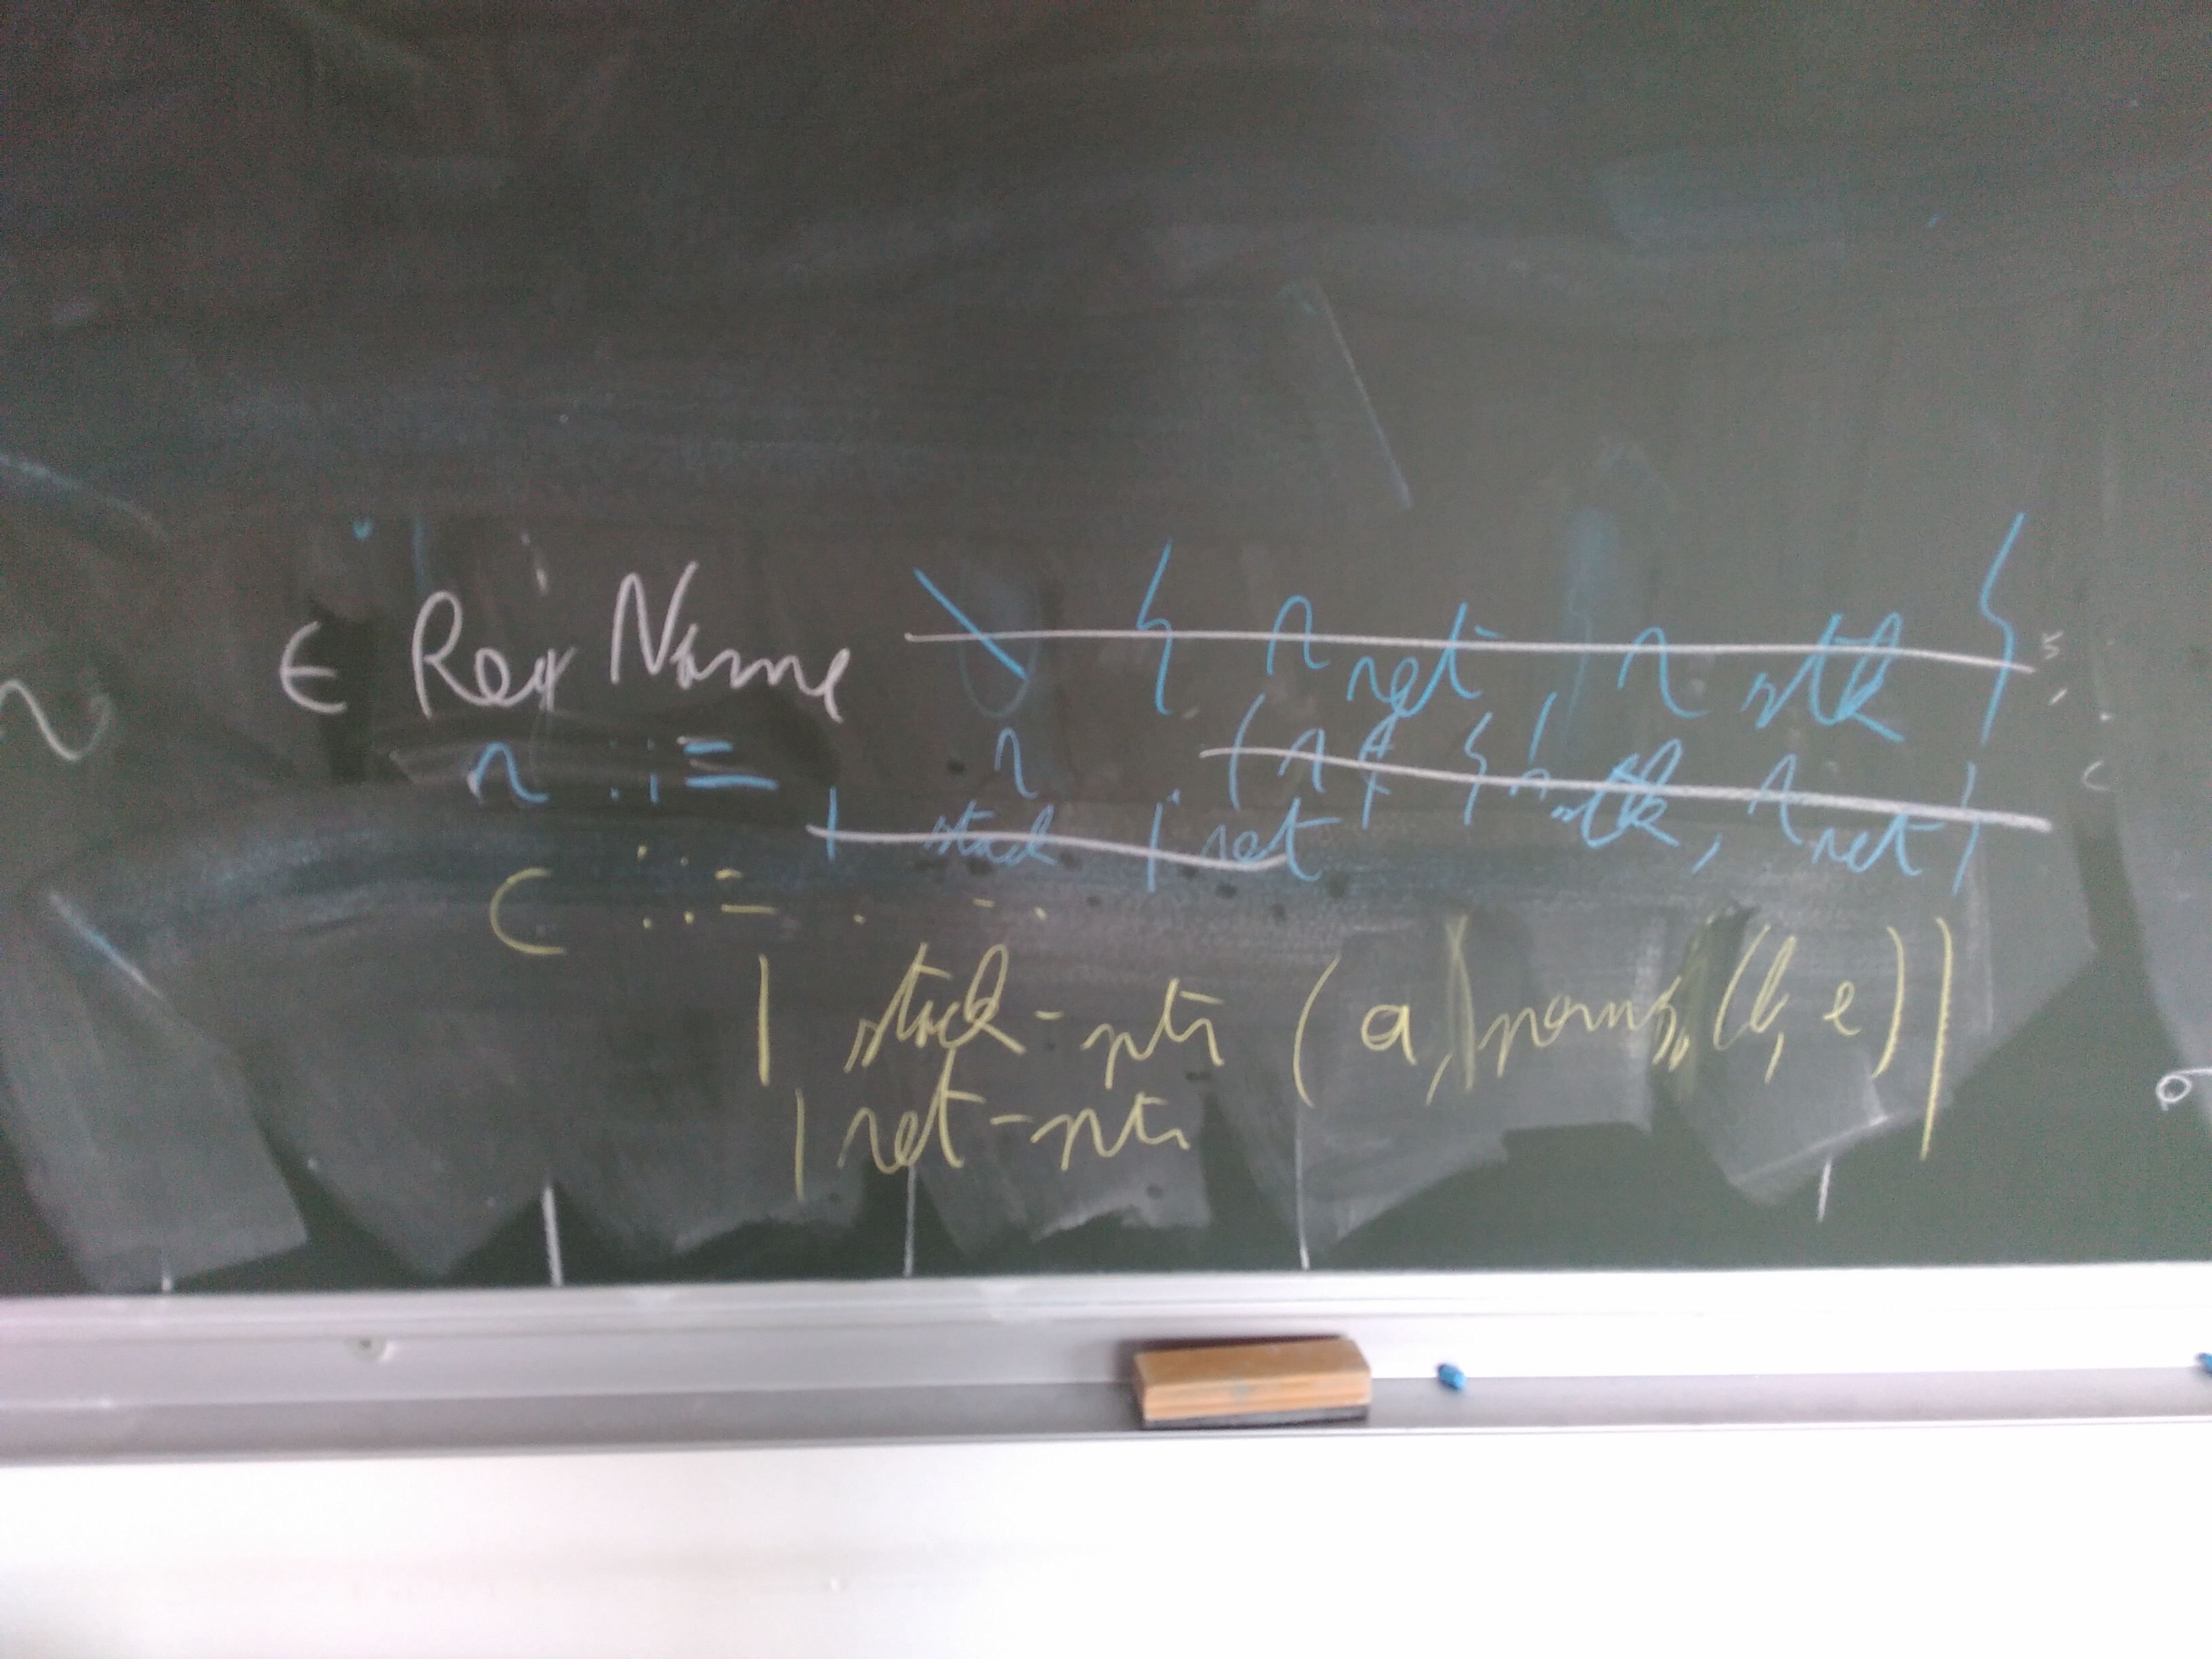 r ∈ RegName \ { r_ret, r_stk }
r ::= r (r ∉ { r_stk, r_ret )
| stack | ret
c ::= ...
| stack-ptr (a, perms, (b, e))
| ret-ptr
σ